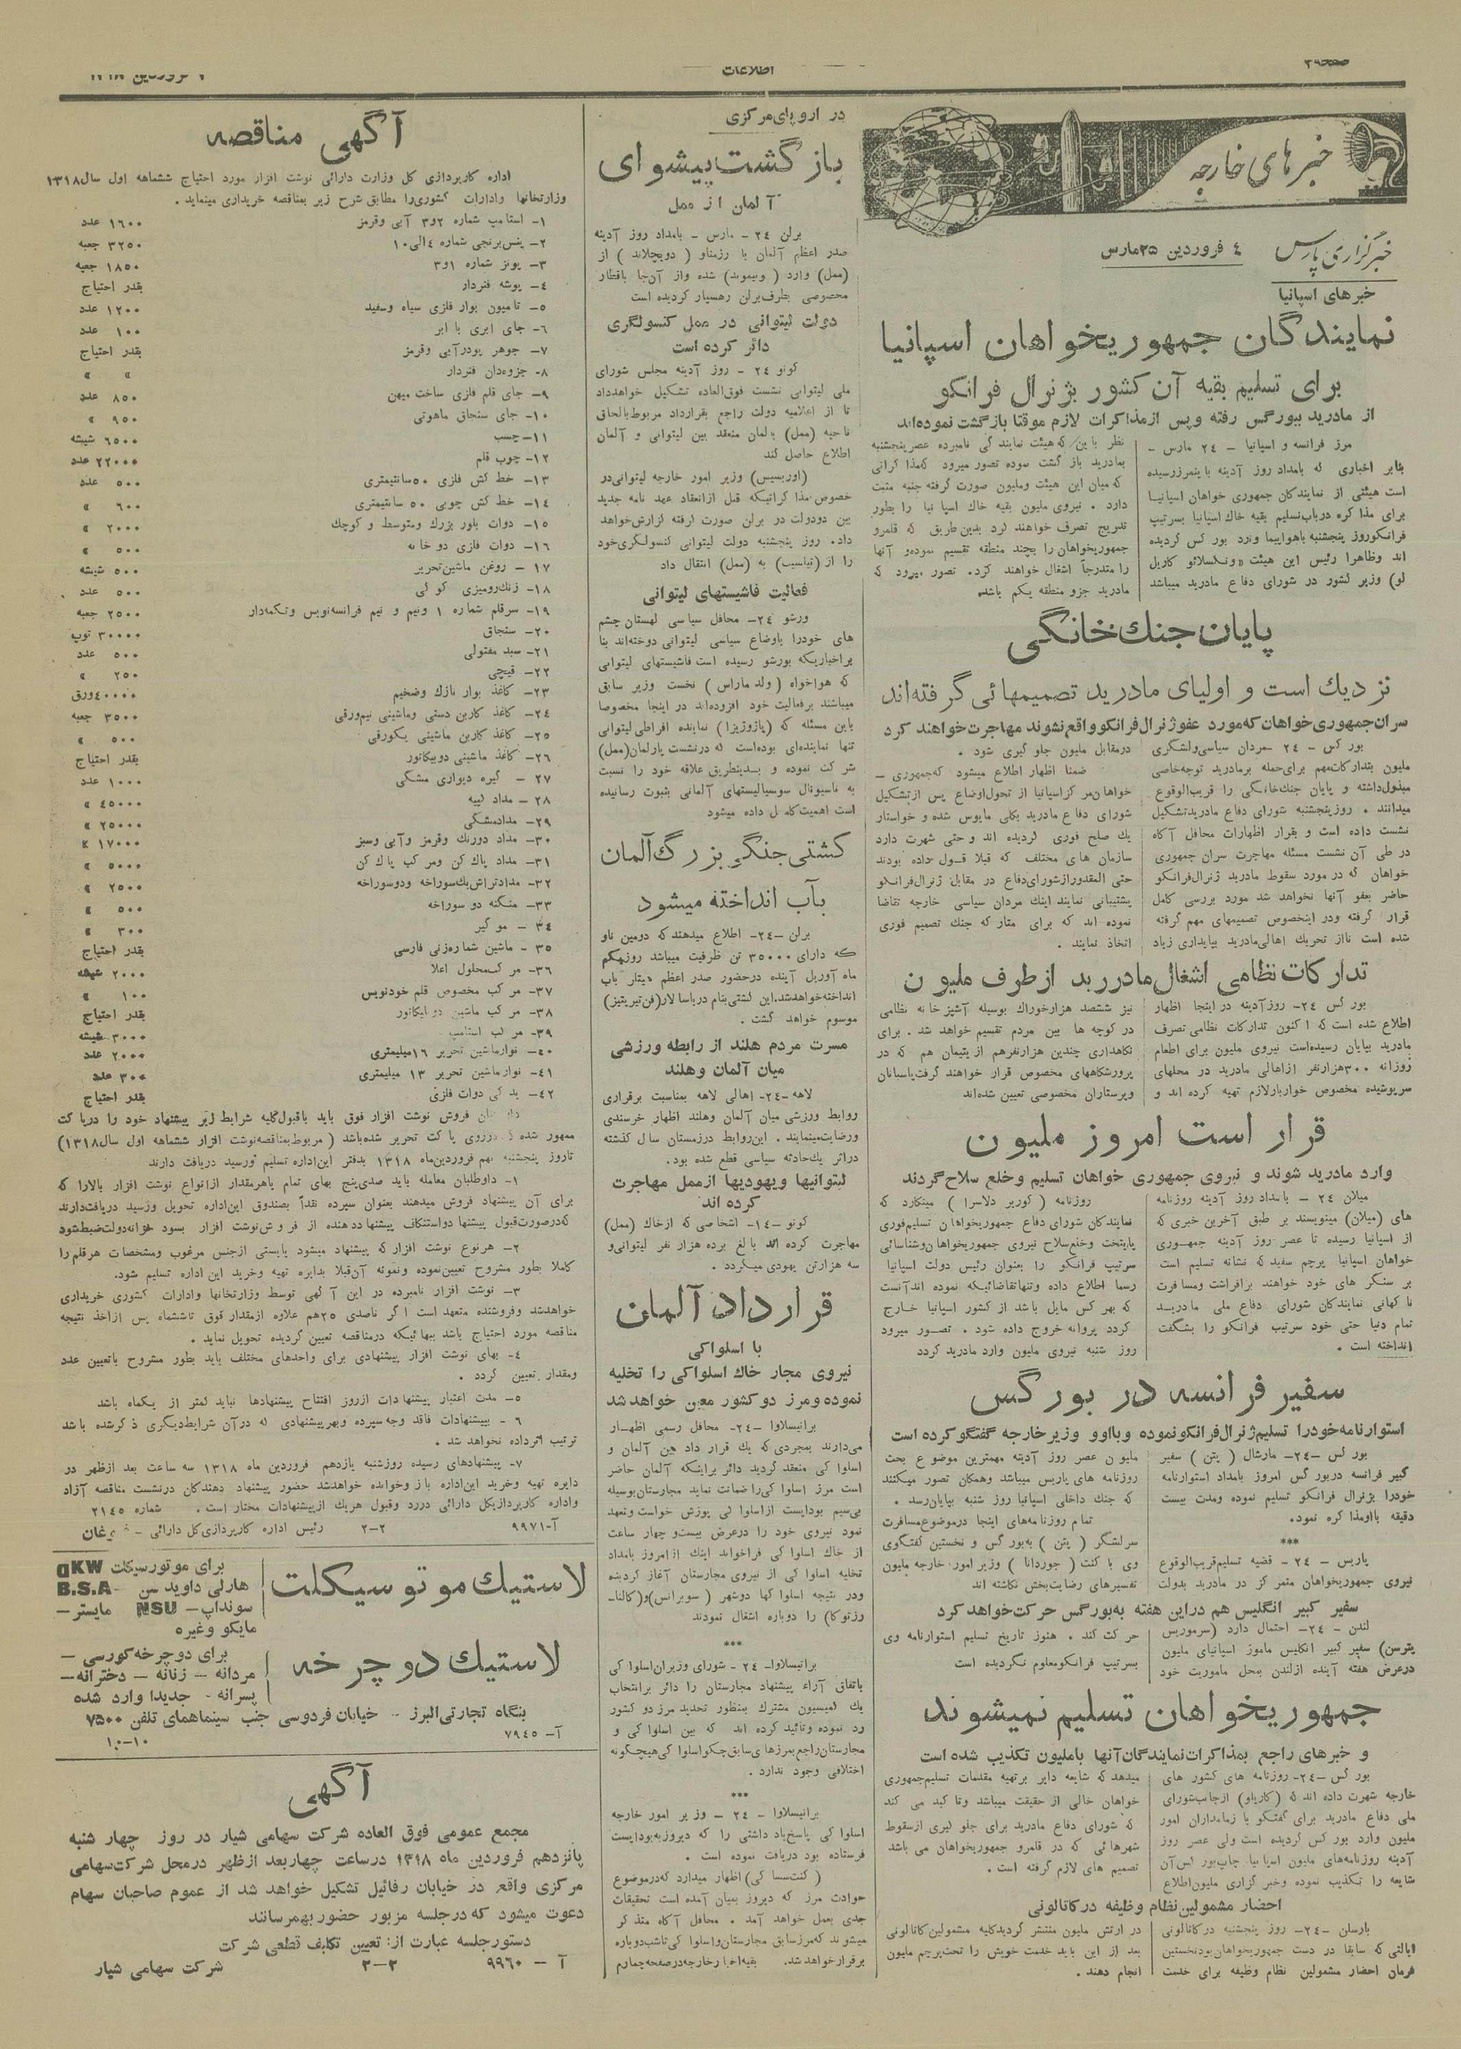 صفحه ۲۹
اطلاعات
فروردین ۱۳۱۸
خبرهای خارجه
خبرگزاری پارس
٤ فروردین ۲۵مارس
خبرهای اسپانیا
نمایندگان جمهوریخواهان اسپانیا
برای تسلیم بقیه آن کشور بژنرال فرانکو
از مادرید ببورگس رفته وپس ازمذاکرات لازم موقتا بازگشت نموده‌اند
مرز فرانسه و اسپانیا - ۲٤ مارس -
بنابر اخباری که بامداد روز آدینه باینمرزرسیده
است هیئتی از نمایندگان جمهوری خواهان اسپانیا
برای مذاکره درباب‌تسلیم بقیه خاك اسپانیا بسرتیپ
فرانکوروز پنجشنبه باهواپیما وارد بورگس گردیده
لو) وزیر کشور در شورای دفاع مادرید میباشد
نظر باین که هیئت نمایندگی نامبرده عصرپنجشنبه
بمادرید بازگشت نموده تصور میرود که‌مذاکراتی
که‌میان این هیئت وملیون صورت گرفته جنبه مثبت
دارد . نیروی ملیون بقیه خاك اسپانیا را بطور
تدریج تصرف خواهند کرد بدین‌طریق که قلمرو
جمهوریخواهان را بچند منطقه تقسیم نموده‌و آنها
را متدرجاً اشغال خواهند کرد. تصور میرود که
مادرید جزو منطقه یکم باشد
پایان جنك‌خانگی
نزدیك است و اولیای مادرید تصمیمهائی‌گرفته‌اند
سران‌جمهوری‌خواهان که‌مورد عفوژنرال‌فرانکوواقع‌نشوند مهاجرت‌خواهند کرد
بورگس - ۲٤ -مردان سیاسی‌ولشگری
ملیون بتدارکات‌مهم برای‌حمله برمادرید توجه‌خاصی
مبذول‌داشته و پایان جنك‌خانگی را قریب‌الوقوع
میدانند . روزپنجشنبه شورای دفاع مادریدتشکیل
نشست داده است و بقرار اظهارات محافل آگاه
در طی آن نشست مسئله مهاجرت سران جمهوری
خواهان که در مورد سقوط مادرید ژنرال‌فرانکو
حاضر بعفو آنها نخواهد شد مورد بررسی کامل
قرار گرفته ودر اینخصوص تصمیمهای مهم گرفته
شده است تااز تحریك اهالی‌مادرید بپایداری زیاد
درمقابل ملیون جلوگیری شود .
ضمنا اظهار اطلاع میشود که‌جمهوری -
خواهان‌مرکزاسپانیا از تحول‌اوضاع پس ازتشکیل
شورای دفاع مادرید بکلی مایوس شده و خواستار
یك صلح فوری گردیده اند و حتی شهرت دارد
سازمان های مختلف که قبلا قول داده بودند
حتی المقدورازشورای‌دفاع در مقابل ژنرال‌فرانکو
پشتیبانی نمایند اینك مردان سیاسی خارجه تقاضا
نموده اند که برای متارکه جنك تصمیم فوری
اتخاذ نمایند .
تدارکات نظامی اشغال‌مادررید ازطرف ملیون
بورگس ۲٤- روزآدینه در اینجا اظهار
اطلاع شده است که اکنون تدارکات نظامی تصرف
مادرید بپایان رسیده‌است نیروی ملیون برای اطعام
روزانه ۳۰۰هزارنفر ازاهالی مادرید در محلهای
سرپوشیده مخصوص خواربارلازم تهیه کرده اند و
نیز ششصد هزارخوراك بوسیله آشپزخانه نظامی
در کوچه ها بین مردم تقسیم خواهد شد . برای
نگاهداری چندین هزارنفرهم از یتیمان هم که در
پرورشگاههای مخصوص قرار خواهند گرفت‌پاسبانان
وپرستاران مخصوصی تعیین شده‌اند
قرار است امروز ملیون
وارد مادرید شوند و نیروی جمهوری خواهان تسلیم وخلع سلاح‌گردند
میلان ۲٤ - بامداد روز آدینه روزنامه
های (میلان) مینویسند بر طبق آخرین خبری که
از اسپانیا رسیده تا عصر روز آدینه جمهوری
خواهان اسپانیا پرچم سفید که نشانه تسلیم است
بر سنگر های خود خواهند برافراشت ومسافرت
ناگهانی نمایندگان شورای دفاع ملی مادرید
تمام دنیا حتی خود سرتیپ فرانکو را بشگفت
انداخته است .
روزنامه (کوریر دلاسرا) مینگارد که
نمایندگان شورای دفاع جمهوریخواهان تسلیم‌فوری
پایتخت وخلع‌سلاح نیروی جمهوریخواهان‌وشناسائی
سرتیپ فرانکو را بعنوان رئیس دولت اسپانیا
رسما اطلاع داده وتنهاتقاضائیکه نموده اندآنست
که بهرکس مایل باشد از کشور اسپانیا خارج
گردد پروانه خروج داده شود . تصور میرود
روز شنبه نیروی ملیون وارد مادرید گردد
سفیر فرانسه در بورگس
استوارنامه‌خودرا تسلیم‌ژنرال‌فرانکونموده وبااوو وزیرخارجه گفتگوکرده است
بورگس -۲٤- مارشال (پتن) سفیر
کبیر فرانسه دربورگس امروز بامداد استوارنامه
خودرا بژنرال فرانکو تسلیم نموده ومدت بیست
دقیقه بااومذاکره نمود.
***
پاریس - ۲٤ - قضیه تسلیم‌قریب‌الوقوع
نیروی جمهوریخواهان متمرکز در مادرید بدولت
ملیون عصر روز آدینه مهمترین موضوع بحث
روزنامه های پاریس میباشد وهمگان تصور میکنند
که جنك داخلی اسپانیا روز شنبه بپایان‌رسد .
تمام روزنامه‌های اینجا درموضوع‌مسافرت
سرلشگر (پتن) به‌بورگس و نخستین گفتگوی
وی با کنت (جوردانا) وزیر امورخارجه ملیون
تفسیرهای رضایت‌بخش نگاشته اند
سفیر کبیر انگلیس هم دراین هفته به‌بورگس حرکت‌خواهد کرد
لندن - ۲٤- احتمال دارد (سرموریس
پترسن) سفیر کبیر انگلیس مامور اسپانیای ملیون
درعرض هفته آینده ازلندن بمحل ماموریت خود
حرکت کند . هنوز تاریخ تسلیم استوارنامه وی
بسرتیپ فرانکومعلوم نگردیده است
جمهوریخواهان تسلیم نمیشوند
و خبرهای راجع بمذاکرات‌نمایندگان‌آنها باملیون تکذیب شده است
بورگس -۲٤- روزنامه های کشور های
خارجه شهرت داده اند که (کاریلو) ازجانب‌شورای
ملی دفاع مادرید برای گفتگو با زمامداران امور
ملیون وارد بورگس گردیده است ولی عصر روز
شایعه را تکذیب نموده وخبرگزاری ملیون‌اطلاع
میدهد که شایعه دایر برتهیه مقدمات تسلیم‌جمهوری
خواهان خالی از حقیقت میباشد وتاکید می کند
که شورای دفاع مادرید برای جلو گیری ازسقوط
شهرهائی که در قلمرو جمهوریخواهان می باشد
تصمیم های لازم گرفته است .
احضار مشمولین‌نظام وظیفه درکاتالونی
بارسلن -۲٤- روز پنجشنبه درکاتالونی
ایالتی که سابقا در دست جمهوریخواهان‌بودنخستین
فرمان احضار مشمولین نظام وظیفه برای خدمت
در ارتش ملیون منتشر گردیدکلیه مشمولین‌کاتالونی
بعد از این باید خدمت خویش را تحت‌پرچم ملیون
انجام دهند .
در اروپای‌مرکزی
بازگشت‌پیشوای
آلمان از ممل
برلن ۲٤ - مارس - بامداد روز آدینه
صدر اعظم آلمان با رزمناو (دویچلاند) از
(ممل) وارد شده واز آن‌جا باقطار
مخصوصی بطرف‌برلن رهسپار گردیده است
دولت لیتوانی در ممل کنسولگری
دائر کرده است
کونو ۲٤ - روز آدینه مجلس شورای
ملی لیتوانی نشست فوق‌العاده تشکیل خواهدداد
تا از اعلامیه دولت راجع بقرارداد مربوط‌بالحاق
ناحیه (ممل) بالمان منعقد بین لیتوانی و آلمان
اطلاع حاصل کند
(اوربسیس) وزیر امور خارجه لیتوانی‌در
خصوص مذاکراتیکه قبل ازانعقاد عهد نامه جدید
بین دودولت در برلن صورت گرفته گزارش‌خواهد
داد. روز پنجشنبه دولت لیتوانی کنسولگری‌خود
را از به (ممل) انتقال داد
فعالیت فاشیستهای لیتوانی
ورشو ۲٤- محافل سیاسی لهستان‌چشم
های خودرا باوضاع سیاسی لیتوانی دوخته‌اند بنا
براخباریکه بورشو رسیده است فاشیستهای لیتوانی
که هواخواه (ولدماراس) نخست وزیر سابق
میباشند برفعالیت خود افزوده‌اند در اینجا مخصوصا
باین مسئله که نماینده افراطی‌لیتوانی
تنها نماینده‌ای بوده‌است که درنشست پارلمان(ممل)
شرکت نموده و بدینطریق علاقه خود را نسبت
به ناسیونال سوسیالیستهای آلمانی بثبوت رسانیده
است اهمیت‌کامل داده میشود
کشتی‌جنگی بزرگ‌آلمان
بآب انداخته میشود
برلن -۲٤- اطلاع میدهندکه دومین ناو
که دارای ۳۵۰۰۰ تن ظرفیت میباشد روزیکم
ماه آوریل آینده درحضور صدر اعظم هیتلر بآب
انداخته‌خواهدشد.این کشتی‌بنام دریاسالار(فن‌تیرپتیز)
موسوم خواهد گشت .
مسرت مردم هلند از رابطه ورزشی
میان آلمان وهلند
لاهه -۲٤- اهالی لاهه بمناسبت برقراری
روابط ورزشی میان آلمان وهلند اظهار خرسندی
ورضایت‌مینمایند . این‌روابط درزمستان سال گذشته
دراثر یك‌حادثه سیاسی قطع شده بود.
لیتوانیها ویهودیها ازممل مهاجرت
کرده اند
کونو -۱٤- اشخاصی که ازخاك (ممل)
مهاجرت کرده اند بالغ برده هزار نفر لیتوانی‌و
سه هزارتن یهودی میگردد .
قرارداد آلمان
با اسلواکی
نیروی مجار خاك اسلواکی را تخلیه
نموده‌ومرز دوکشور معین خواهدشد
براتیسلاوا -۲٤- محافل رسمی اظهار
می‌دارند بمجردی‌که یك قرار داد بین آلمان و
اسلواکی منعقد گردید دائر براینکه آلمان حاضر
است مرز اسلواکی‌راضمانت نماید مجارستان‌بوسیله
بی‌سیم بوداپست ازاسلواکی پوزش خواست‌وتعهد
نمود نیروی خود را درعرض بیست‌و چهار ساعت
از خاك اسلواکی فراخواند اینك ازامروز بامداد
تخلیه اسلواکی از نیروی مجارستان آغاز گردیده
ودر نتیجه اسلواکها دوشهر
را دوباره اشغال نمودند
***
براتیسلاوا- ۲٤ - شورای وزیران‌اسلواکی
باتفاق آراء پیشنهاد مجارستان را دائر برانتخاب
یك کمیسیون مشترك بمنظور تحدید مرز دوکشور
رد نموده وتائید کرده اند که بین اسلواکی و
مجارستان‌راجع‌بمرزهای‌سابق‌چکواسلواکی‌هیچگونه
اختلافی وجود ندارد .
***
براتیسلاوا - ۲٤ - وزیر امور خارجه
اسلواکی پاسخ‌یادداشتی را که دیروزببوداپست
فرستاده بود دریافت نموده است .
اظهار میدارد که‌درموضوع
حوادث مرز که دیروز بمیان آمده است تحقیقات
جدی بعمل خواهد آمد . محافل آگاه متذکر
میشوند که‌مرزسابق مجارستان‌واسلواکی‌تاشب‌دوباره
برقرارخواهدشد. بقیه‌اخبارخارجه‌درصفحه‌چهارم
آگهی مناقصه
اداره کارپردازی کل وزارت دارائی نوشت افزار مورد احتیاج ششماهه اول سال۱۳۱۸
وزارتخانها وادارات کشوری‌را مطابق شرح زیر بمناقصه خریداری مینماید .
۱- استامپ شماره ۲و۳ آبی وقرمز ۱٦۰۰ عدد
۲- پنس‌برنجی شماره ٤الی۱۰ ۳۲۵۰ جعبه
۳- پونز شماره ۱و۳ ۱۸۵۰ جعبه
٤- پوشه فنردار بقدر احتیاج
۵- تامپون بوار فلزی سیاه وسفید ۱۲۰۰ عدد
٦- جای ابری با ابر ۱۰۰ عدد
۷- جوهر پودرآبی وقرمز بقدر احتیاج
۸- جزوه‌دان فنردار » »
۹- جای قلم فلزی ساخت میهن ۸۵۰ عدد
۱۰- جای سنجاق ماهوتی ۹۵۰ »
۱۱- چسب ٦۵۰۰ شیشه
۱۲- چوب قلم ۲۲۰۰۰ عدد
۱۳- خط کش فلزی ۵۰سانتیمتری ۵۰۰ عدد
۱٤- خط کش چوبی ۵۰ سانتیمتری ٦۰۰ »
۱۵- دوات بلور بزرك ومتوسط و کوچك ۲۰۰۰ »
۱٦- دوات فلزی دو خانه ۵۰۰ »
۱۷- روغن ماشین‌تحریر ۵۰۰ شیشه
۱۸- زنك‌رومیزی کوکی ۵۰۰ عدد
۱۹- سرقلم شماره ۱ ونیم و نیم فرانسه‌نویس وتکمه‌دار ۲۵۰۰ جعبه
۲۰- سنجاق ۳۰۰۰۰ توپ
۲۱- سبد مفتولی ۵۰۰ عدد
۲۲- قیچی ۲۵۰ »
۲۳- کاغذ بوار نازك وضخیم ٤۰۰۰۰ورق
۲٤- کاغذ کاربن دستی وماشینی نیم‌ورقی ۳۵۰۰ جعبه
۲۵- کاغذ کاربن ماشینی یکورقی ۵۰۰ »
۲٦- کاغذ ماشینی دوپیکانور بقدر احتیاج
۲۷- گیره دیواری مشکی ۱۰۰۰ عدد
۲۸- مداد کپیه ٤۵۰۰۰ »
۲۹- مدادمشکی ۲۵۰۰۰ »
۳۰- مداد دورنك وقرمز وآبی وسبز ۱۷۰۰۰ »
۳۱- مداد پاك کن ومرکب پاك کن ۵۰۰۰ »
۳۲- مدادتراش‌یك‌سوراخه ودوسوراخه ۲۵۰۰ »
۳۳- منگنه دو سوراخه ۵۰۰ »
۳٤- موگیر ۳۰۰ »
۳۵- ماشین شماره‌زنی فارسی بقدر احتیاج
۳٦- مرکب‌محلول اعلا ۲۰۰۰ شیشه
۳۷- مرکب مخصوص قلم خودنویس ۱۰۰ »
۳۸- مرکب ماشین دوپلیکاتور بقدر احتیاج
۳۹- مرکب استامپ ۳۰۰۰ شیشه
٤۰- نوارماشین تحریر ۱٦میلیمتری ۲۰۰۰ عدد
٤۱- نوارماشین تحریر ۱۳ میلیمتری ۳۰۰ عدد
٤۲- یدکی دوات فلزی بقدر احتیاج
فروش نوشت افزار فوق باید باقبول‌کلیه شرایط زیر پیشنهاد خود را درپاکت
ممهور شده که درروی پاکت تحریر شده‌باشد (مربوط‌بمناقصه‌نوشت افزار ششماهه اول سال۱۳۱۸)
تاروز پنجشنبه نهم فروردین‌ماه ۱۳۱۸ بدفتر این‌اداره تسلیم ورسید دریافت دارند
۱- داوطلبان معامله باید صدی‌پنج بهای تمام یاهرمقدار ازانواع نوشت افزار بالارا که
برای آن پیشنهاد فروش میدهند بعنوان سپرده نقداً بصندوق این‌اداره تحویل ورسید دریافت‌دارند
که‌درصورت‌قبول پیشنهاد واستنکاف پیشنهاددهنده از فروش‌نوشت افزار بسود خزانه‌دولت‌ضبط‌شود
۲- هرنوع نوشت افزارکه پیشنهاد میشود بایستی ازجنس مرغوب ومشخصات هرقلم‌را
کاملا بطور مشروح تعیین‌نموده ونمونه آن‌قبلا بدایره تهیه وخرید این اداره تسلیم شود.
۳- نوشت افزار نامبرده در این آگهی توسط وزارتخانها وادارات کشوری خریداری
خواهدشد وفروشنده متعهد است اگر تاصدی ۲۵هم علاوه ازمقدار فوق تاششماه پس ازاخذ نتیجه
مناقصه مورد احتیاج باشد ببهائیکه درمناقصه تعیین گردیده تحویل نماید .
٤- بهای نوشت افزار پیشنهادی برای واحدهای مختلف باید بطور مشروح باتعیین عدد
ومقدار تعیین گردد .
۵- مدت اعتبار پیشنهادات ازروز افتتاح پیشنهادها نباید کمتر از یکماه باشد
٦- بپیشنهادات فاقد وجه‌سپرده وبهرپیشنهادی که درآن شرایط‌دیگری ذکرشده باشد
ترتیب اثرداده نخواهد شد .
۷- پیشنهادهای رسیده روزشنبه یازدهم فروردین ماه ۱۳۱۸ سه ساعت بعد ازظهر در
دایره تهیه وخرید این‌اداره باز وخوانده خواهدشد حضور پیشنهاد دهندگان درنشست مناقصه آزاد
واداره کارپردازیکل دارائی دررد وقبول هریك ازپیشنهادات مختار است . شماره ۲۱٤۵
آ-۹۹۷۱ ۲-۲ رئیس اداره کارپردازی‌کل دارائی -
لاستیك موتوسیکلت
برای موتورسیکلت DKW
هارلی داوید سن B.S.A-
سونداپ- NSU مایستر-
مایکو وغیره
لاستیك دوچرخه
برای دوچرخه‌کورسی -
مردانه - زنانه - دخترانه-
پسرانه- جدیدا وارد شده
بنگاه تجارتی‌البرز - خیابان فردوسی جنب سینماهمای تلفن ۷۵۰۰
آ- ۷۹٤۵ ۱۰-۱۰
آگهی
مجمع عمومی فوق العاده شرکت سهامی شیار در روز چهار شنبه
پانزدهم فروردین ماه ۱۳۱۸ درساعت چهاربعد ازظهر درمحل شرکت‌سهامی
مرکزی واقع در خیابان رفائیل تشکیل خواهد شد از عموم صاحبان سهام
دعوت میشود که درجلسه مزبور حضور بهمرسانند
دستورجلسه عبارت از: تعیین تکلیف قطعی شرکت
آ - ۹۹٦۰ ۲-۲ شرکت سهامی شیار